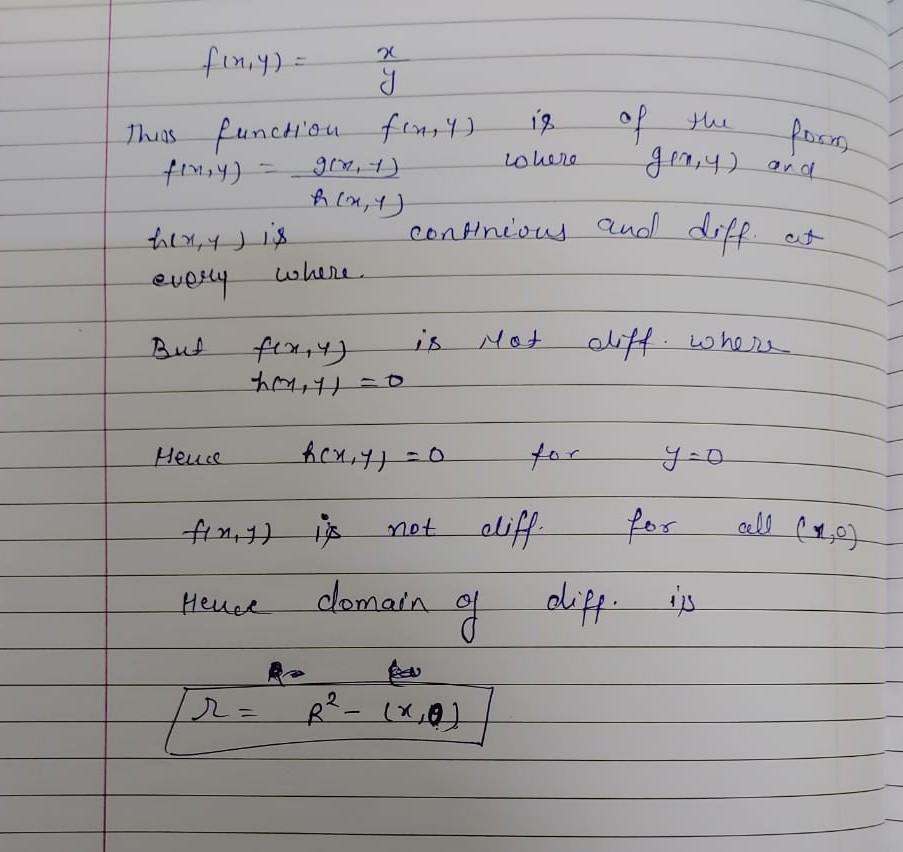 f(x,y) = x/y
This function f(x,y) is of the form
f(x,y) = g(x,y)/h(x,y) where g(x,y) and
h(x,y) is continious and diff. at
every where.
But f(x,y) is Not diff. where
h(x,y) = 0
Hence h(x,y) = 0 for y=0
f(x,y) is not diff. for all (x,0)
Hence domain of diff. is
Ω = R² - (x,0)